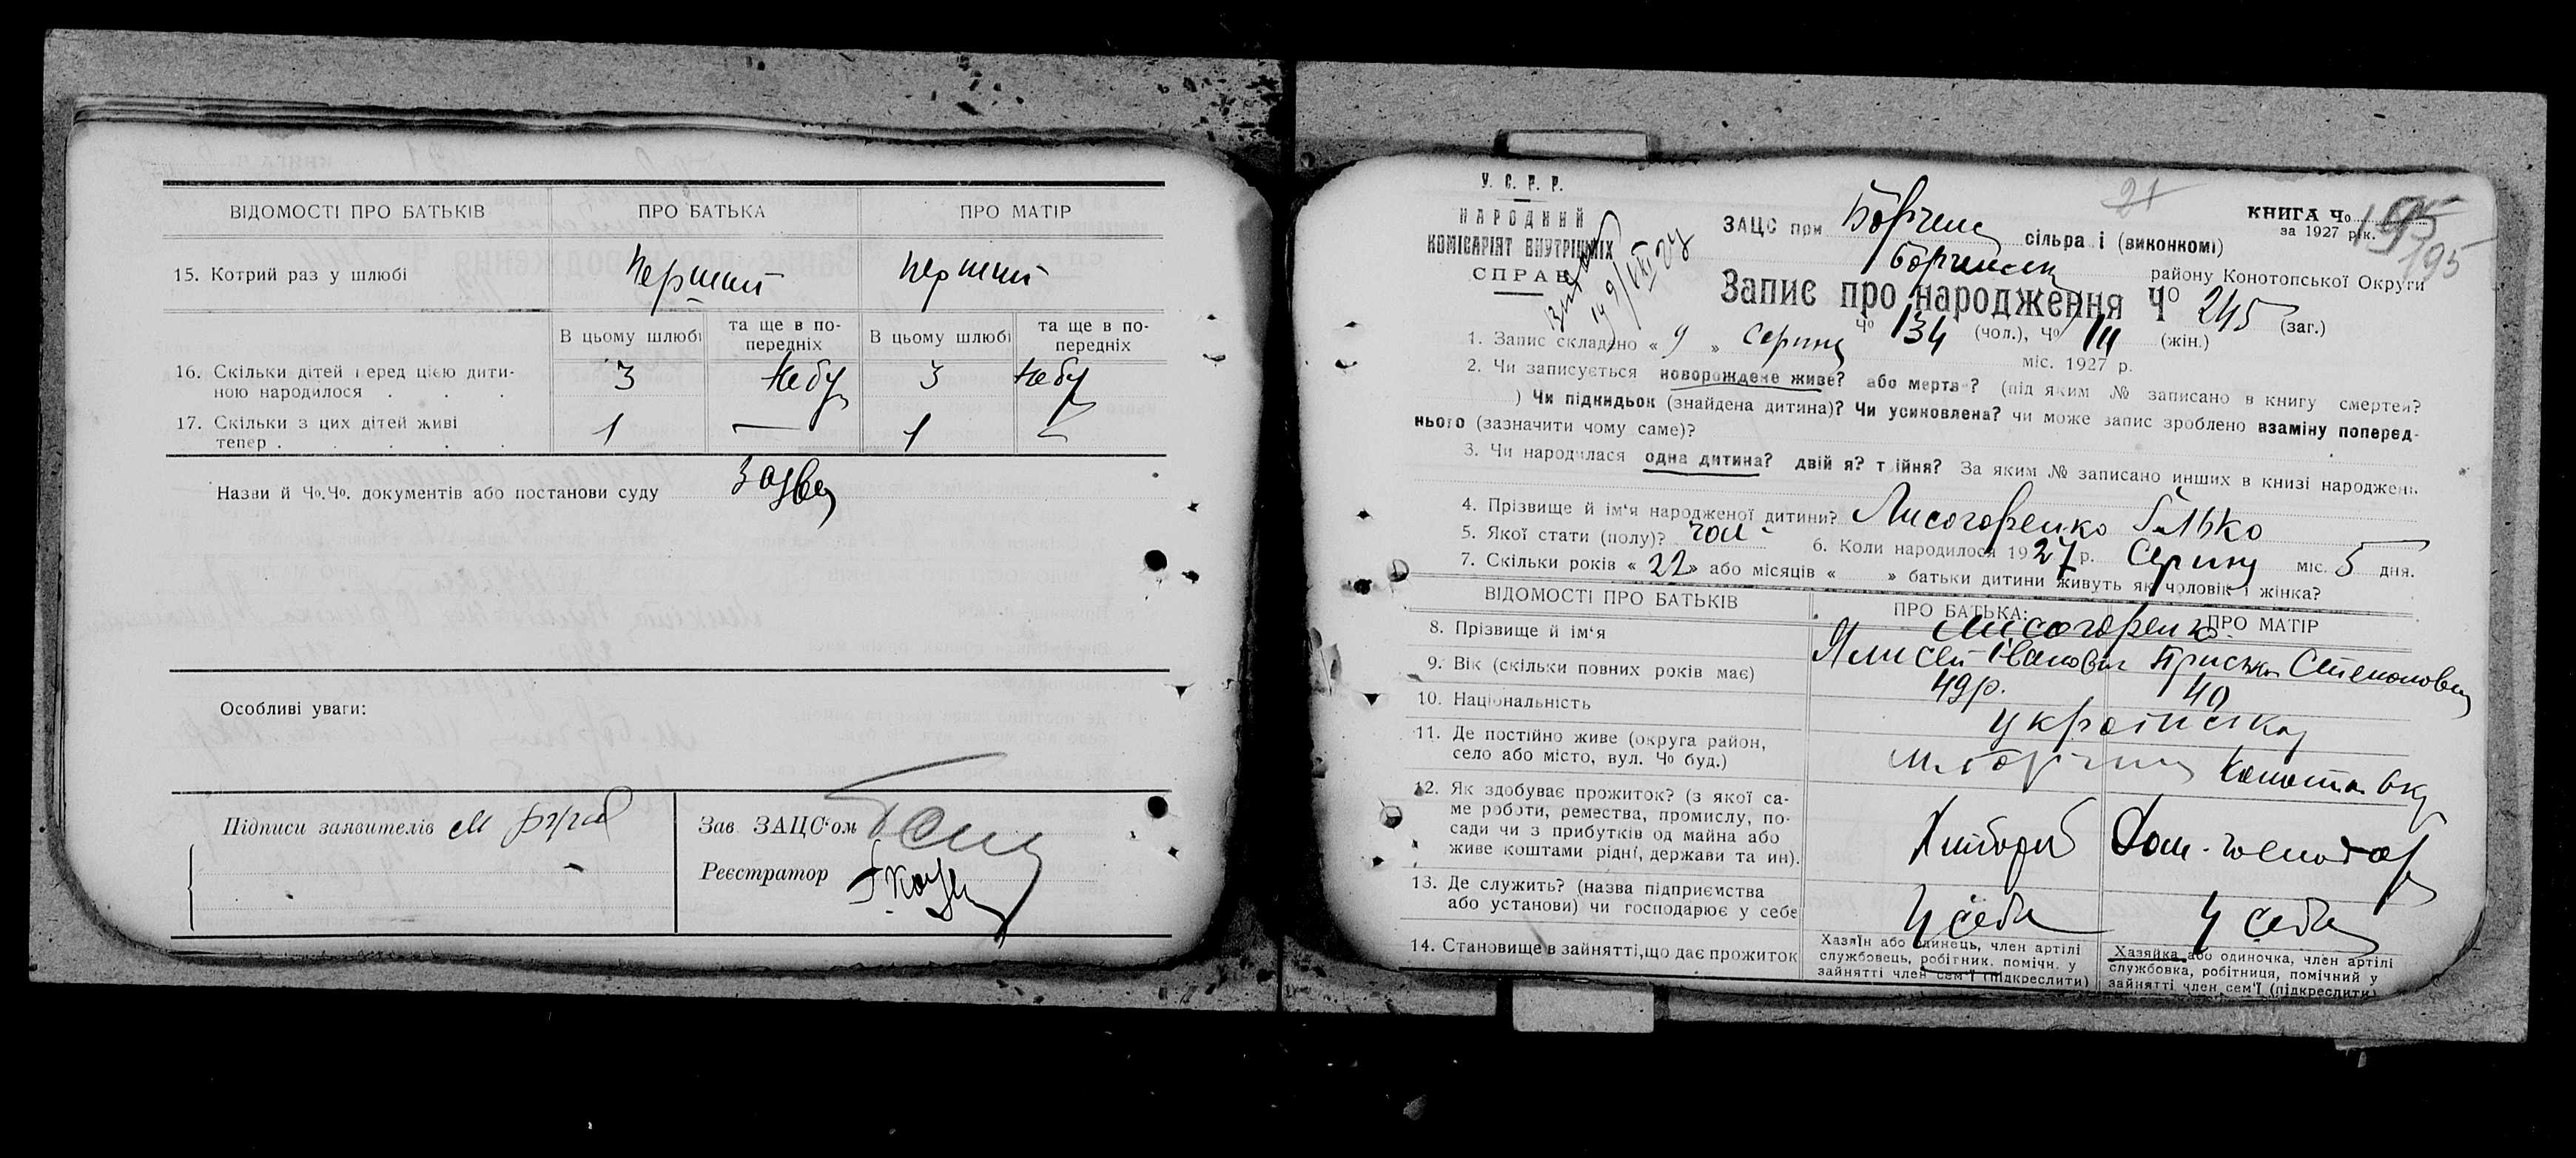 ВІДОМОСТІ ПРО БАТЬКІВ ПРО БАТЬКА ПРО МАТІР
15. Котрий раз у шлюбі перший перший
В цьому шлюбі та ще в по-передніх В цьому шлюбі та ще в по-передніх
16. Скільки дітей перед цією дити-
ною народилося . . . 3 3
17. Скільки з цих дітей живі
тепер . . . . . 1 — 1
Назви й Чо.Чо. документів або постанови суду
Особливі уваги:
Підписи заявителів
Зав ЗАЦС'ом
Реєстратор
У. С. Р. Р.
НАРОДНИЙ
КОМІСАРІЯТ ВНУТРІШНІХ
СПРАВ
21
КНИГА Чо
за 1927 рік.
195
ЗАЦС при сільраді (виконкомі)
району Конотопської Округи
Запис про народження Чо 245 (заг.)
Чо 134 (чол.), Чо 111 (жін.)
1. Запис складено « 9 » серпня міс. 1927 р.
2. Чи записується новорождене живе? або мертве? (під яким № записано в книгу смертей?
) Чи підкидьок (знайдена дитина)? Чи усиновлена? чи може запис зроблено взаміну поперед-
нього (зазначити чому саме)?
3. Чи народилася одна дитина? двійня? трійня? За яким № записано инших в книзі народжень
4. Прізвище й ім'я народженої дитини? Лисогоренко Гилько
5. Якої стати (полу)? чол 6. Коли народилося 1927 р. Серпня міс. 5 дня.
7. Скільки років « 22 » або місяців « » батьки дитини живуть як чоловік і жінка?
ВІДОМОСТІ ПРО БАТЬКІВ ПРО БАТЬКА: ПРО МАТІР
8. Прізвище й ім'я Лисогоренко
Ялисей Іванович Приська Степановна
9. Вік (скільки повних років має) 49р. 40
10. Національність українська
11. Де постійно живе (округа район,
село або місто, вул. Чо буд.)
12. Як здобуває прожиток? (з якої са-
ме роботи, ремества, промислу, по-
сади чи з прибутків од майна або
живе коштами рідні, держави та ин). Хлібороб
13. Де служить? (назва підприємства
або установи) чи господарює у себе у себе у себе
14. Становище в зайнятті, що дає прожиток
Хазяїн або одинець, член артілі
службовець, робітник, помічн. у
зайнятті член сем'ї (підкреслити)
Хазяйка або одиночка, член артілі
службовка, робітниця, помічний у
зайнятті член сем'ї (підкреслити)